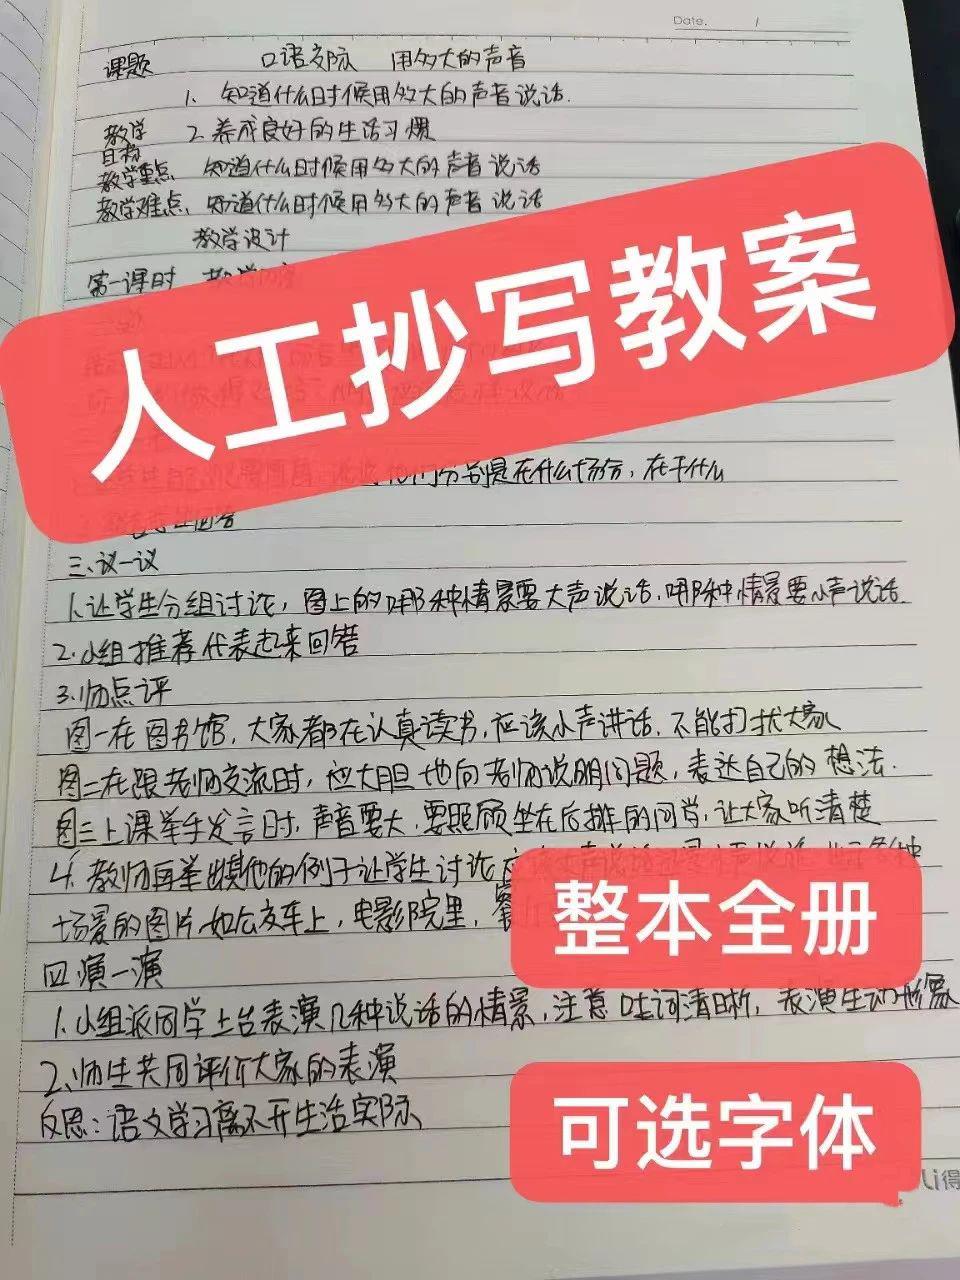 Date.
课题 口语交际 用多大的声音
1、知道什么时候用多大的声音说话.
教学目标 2.养成良好的生活习惯
教学重点 知道什么时候用多大的声音说话
教学难点、知道什么时候用多大的声音说话
教学设计
第一课时
人工抄写教案
分别是在什么场合,在干什么
三、议一议
1.让学生分组讨论,图上的哪种情景要大声说话.哪种情景要小声说话.
2.小组推荐代表起来回答
3.师点评
图一在图书馆,大家都在认真读书,应该小声讲话,不能打扰大家
图二在跟老师交流时,应大胆地向老师说明问题,表达自己的想法.
图三上课举手发言时,声音要大,要照顾坐在后排的同学,让大家听清楚
4.教师再举出其他的例子让学生讨论
场景的图片如公交车上,电影院里,
整本全册
四演一演
1.小组派同学上台表演几种说话的情景,注意吐词清晰,表演生动形象
2、师生共同评价大家的表演
反思:语文学习离不开生活实际
可选字体